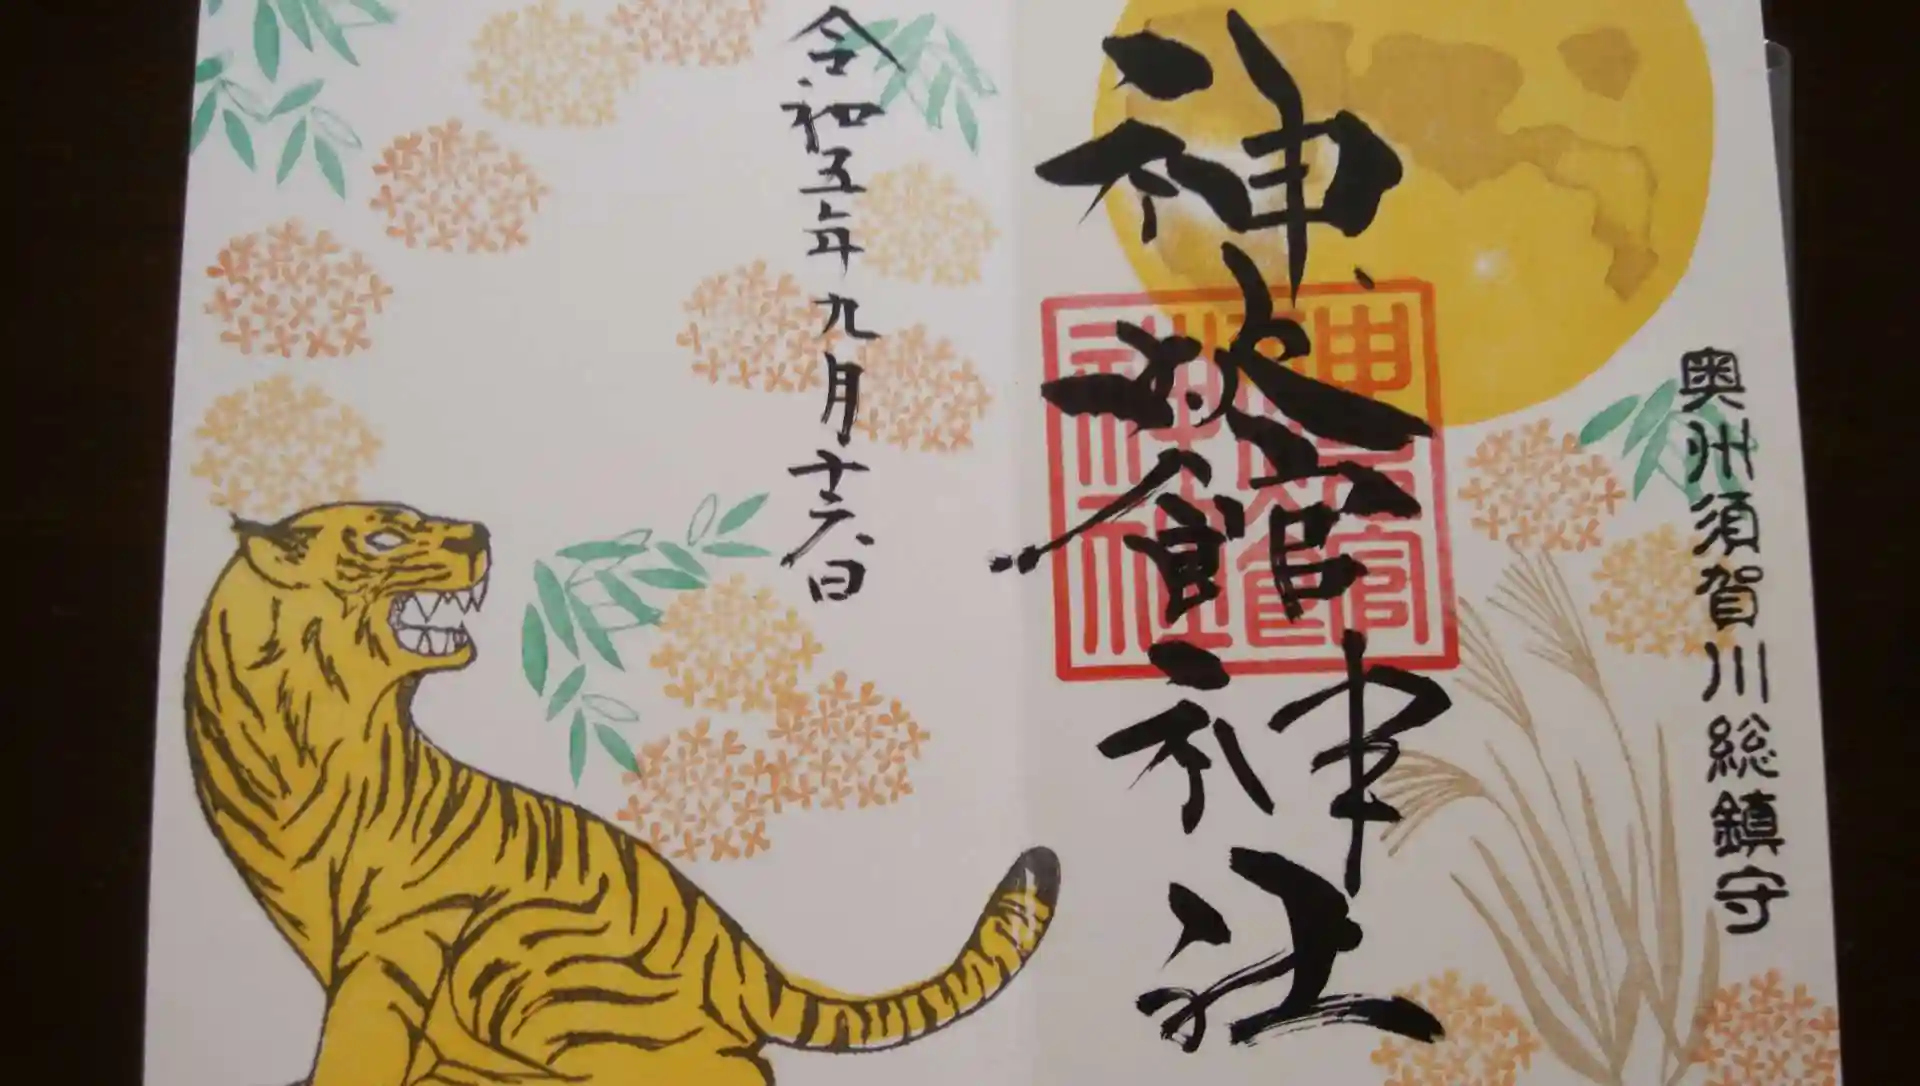 奥州須賀川総鎮守
神炊館神社
神炊館神社
令和五年九月十六日